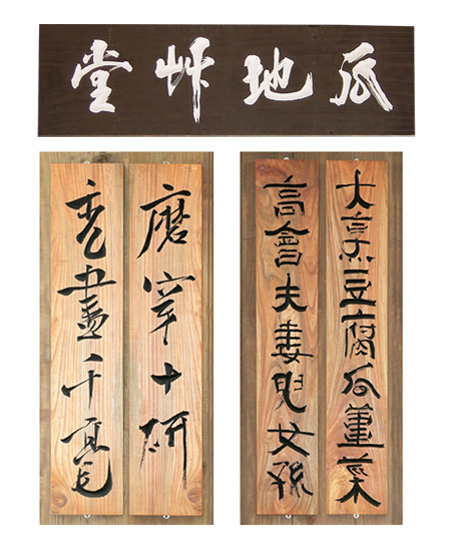 瓜地艸堂
大烹豆腐瓜薑菜
高會夫妻兒女孫
磨穿十研
禿盡千毫